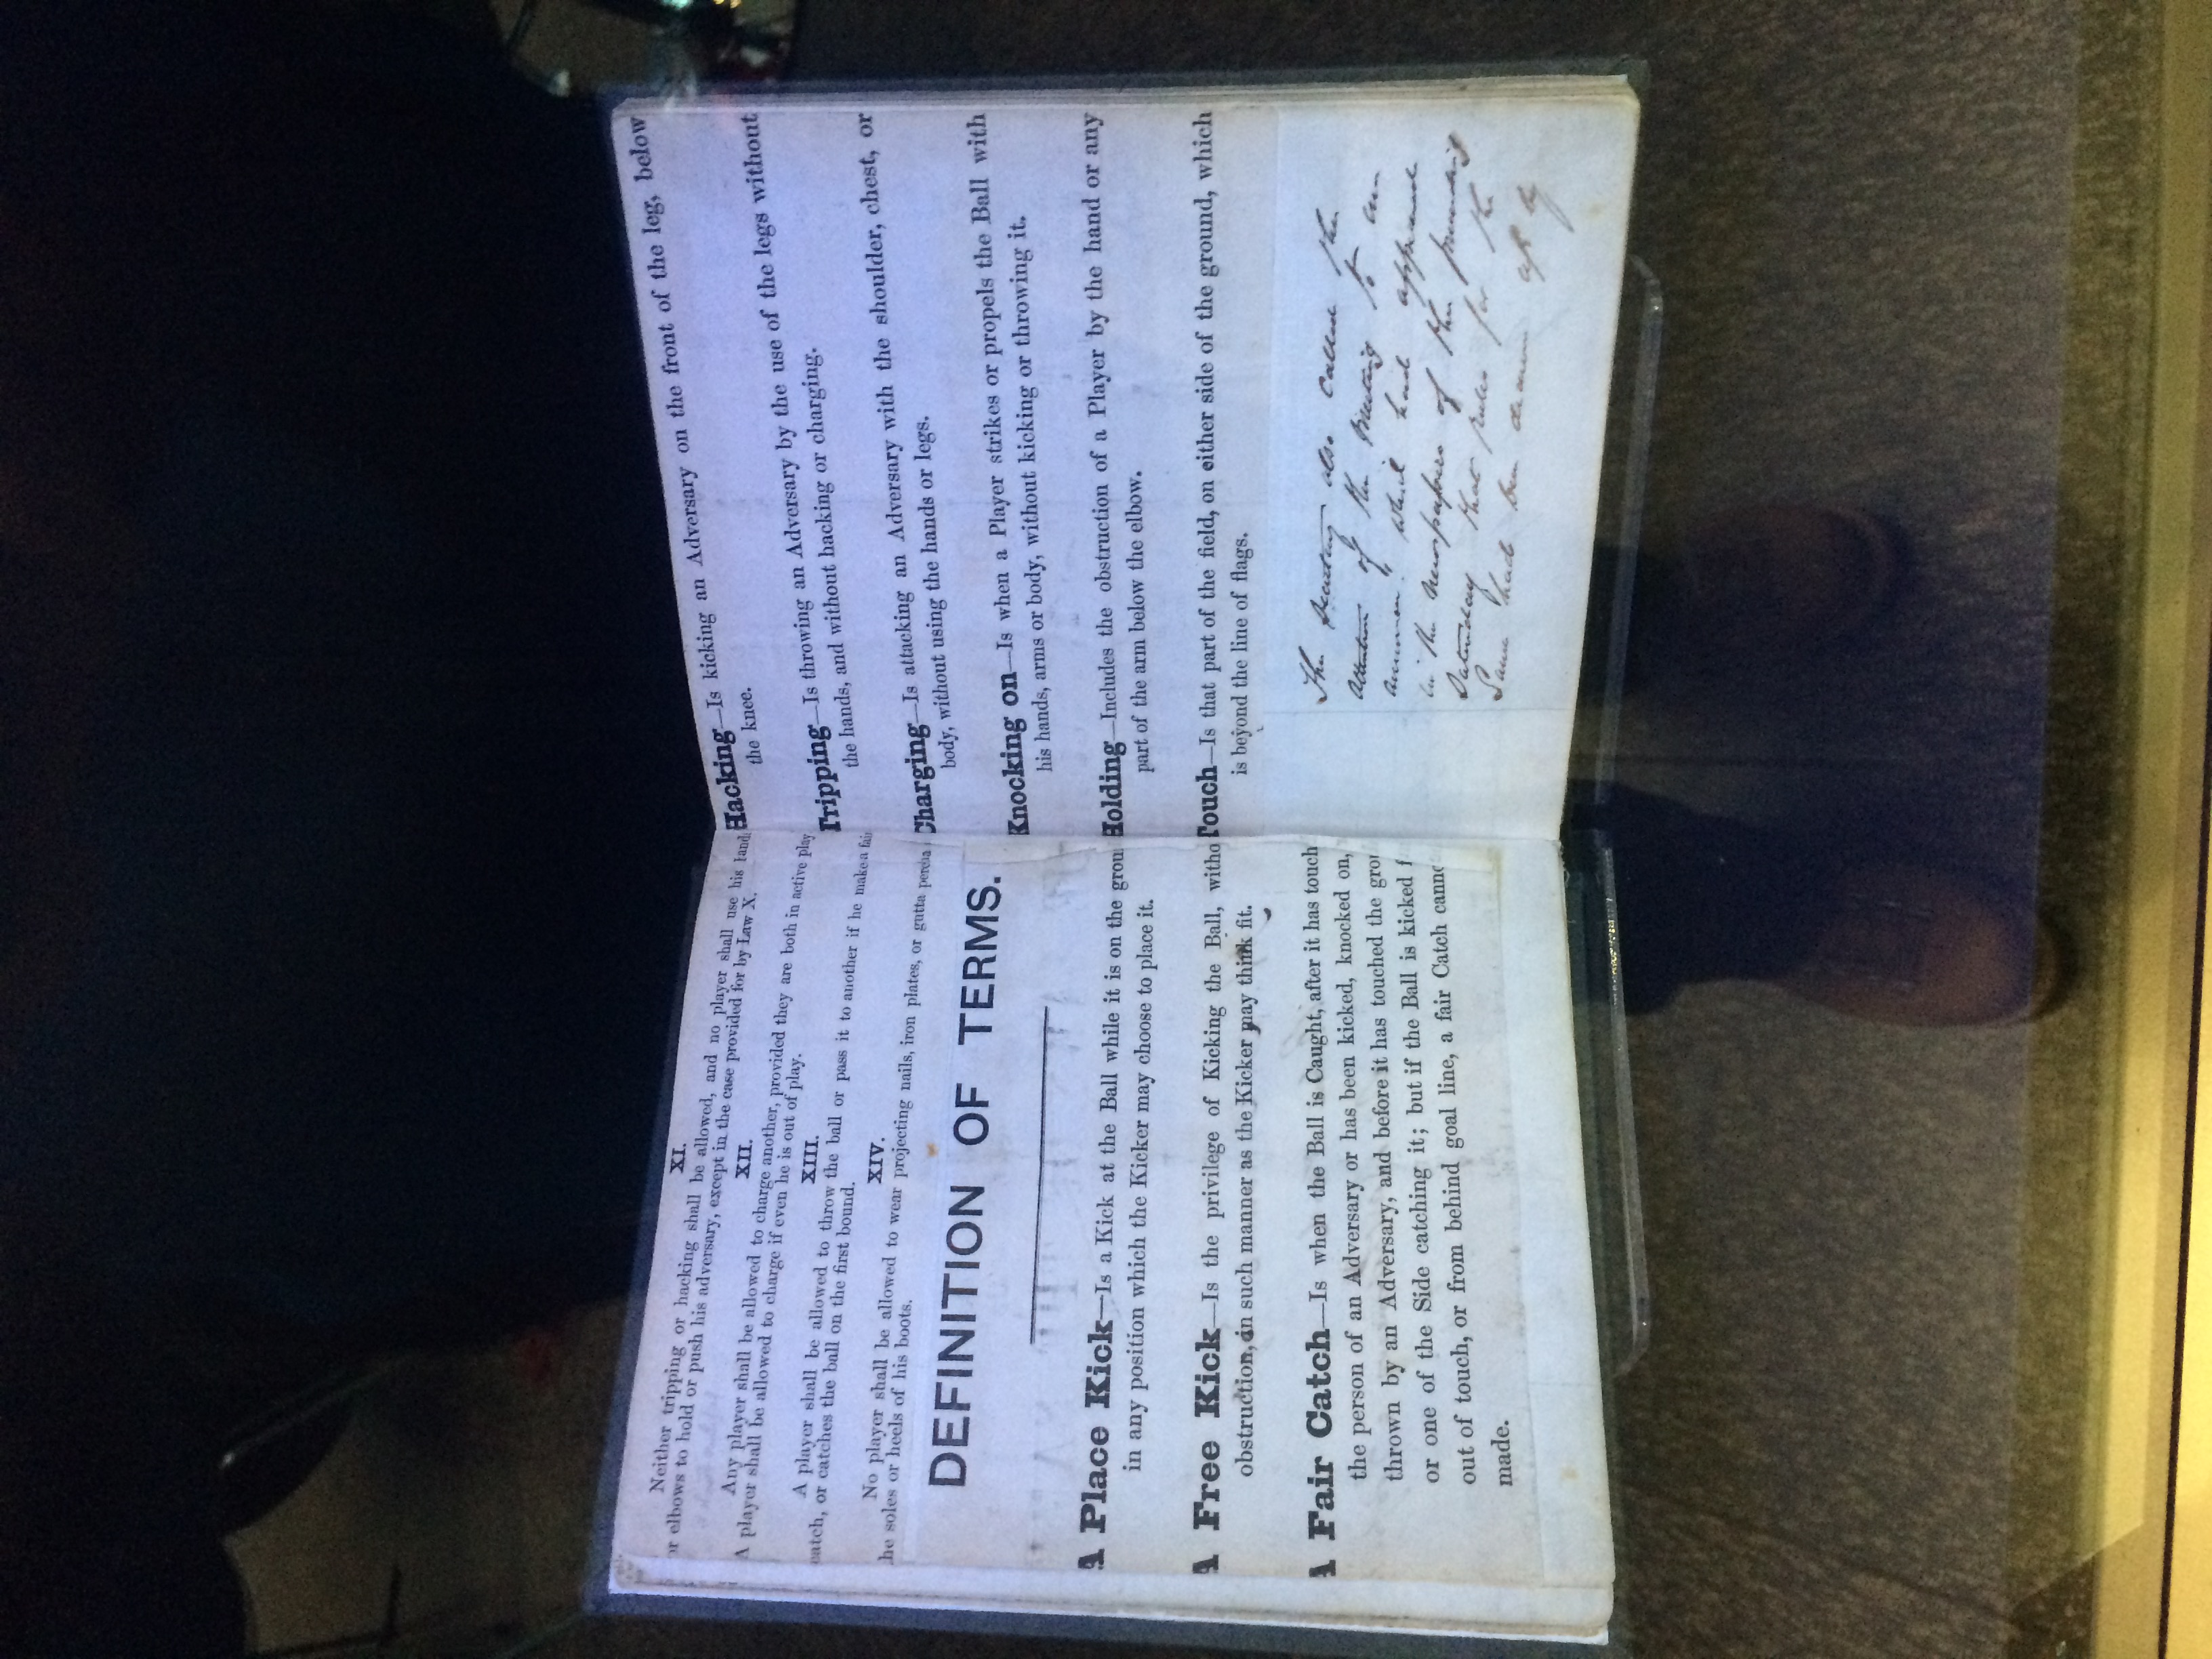 XI.
Neither tripping or hacking shall be allowed, and no player shall use his hand
or elbows to hold or push his adversary, except in the case provided for by Law X.
XII.
Any player shall be allowed to charge another, provided they are both in active play
A player shall be allowed to charge if even he is out of play.
XIII.
A player shall be allowed to throw the ball or pass it to another if he make a fair
catch, or catches the ball on the first bound.
XIV.
No player shall be allowed to wear projecting nails, iron plates, or gutta percha
he soles or heels of his boots.
DEFINITION OF TERMS.
A Place Kick—Is a Kick at the Ball while it is on the grou
in any position which the Kicker may choose to place it.
A Free Kick—Is the privilege of Kicking the Ball, witho
obstruction, in such manner as the Kicker may think fit.
A Fair Catch—Is when the Ball is Caught, after it has touch
the person of an Adversary or has been kicked, knocked on,
thrown by an Adversary, and before it has touched the grou
or one of the Side catching it; but if the Ball is kicked f
out of touch, or from behind goal line, a fair Catch canno
made.
Hacking—Is kicking an Adversary on the front of the leg, below
the knee.
Tripping—Is throwing an Adversary by the use of the legs without
the hands, and without hacking or charging.
Charging—Is attacking an Adversary with the shoulder, chest, or
body, without using the hands or legs.
Knocking on—Is when a Player strikes or propels the Ball with
his hands, arms or body, without kicking or throwing it.
Holding—Includes the obstruction of a Player by the hand or any
part of the arm below the elbow.
Touch—Is that part of the field, on either side of the ground, which
is beyond the line of flags.
The Secretary also called the
attention of the Meeting to an
which had appeared
in the Newspapers of the
Saturday that rules for the
Game had been drawn up by